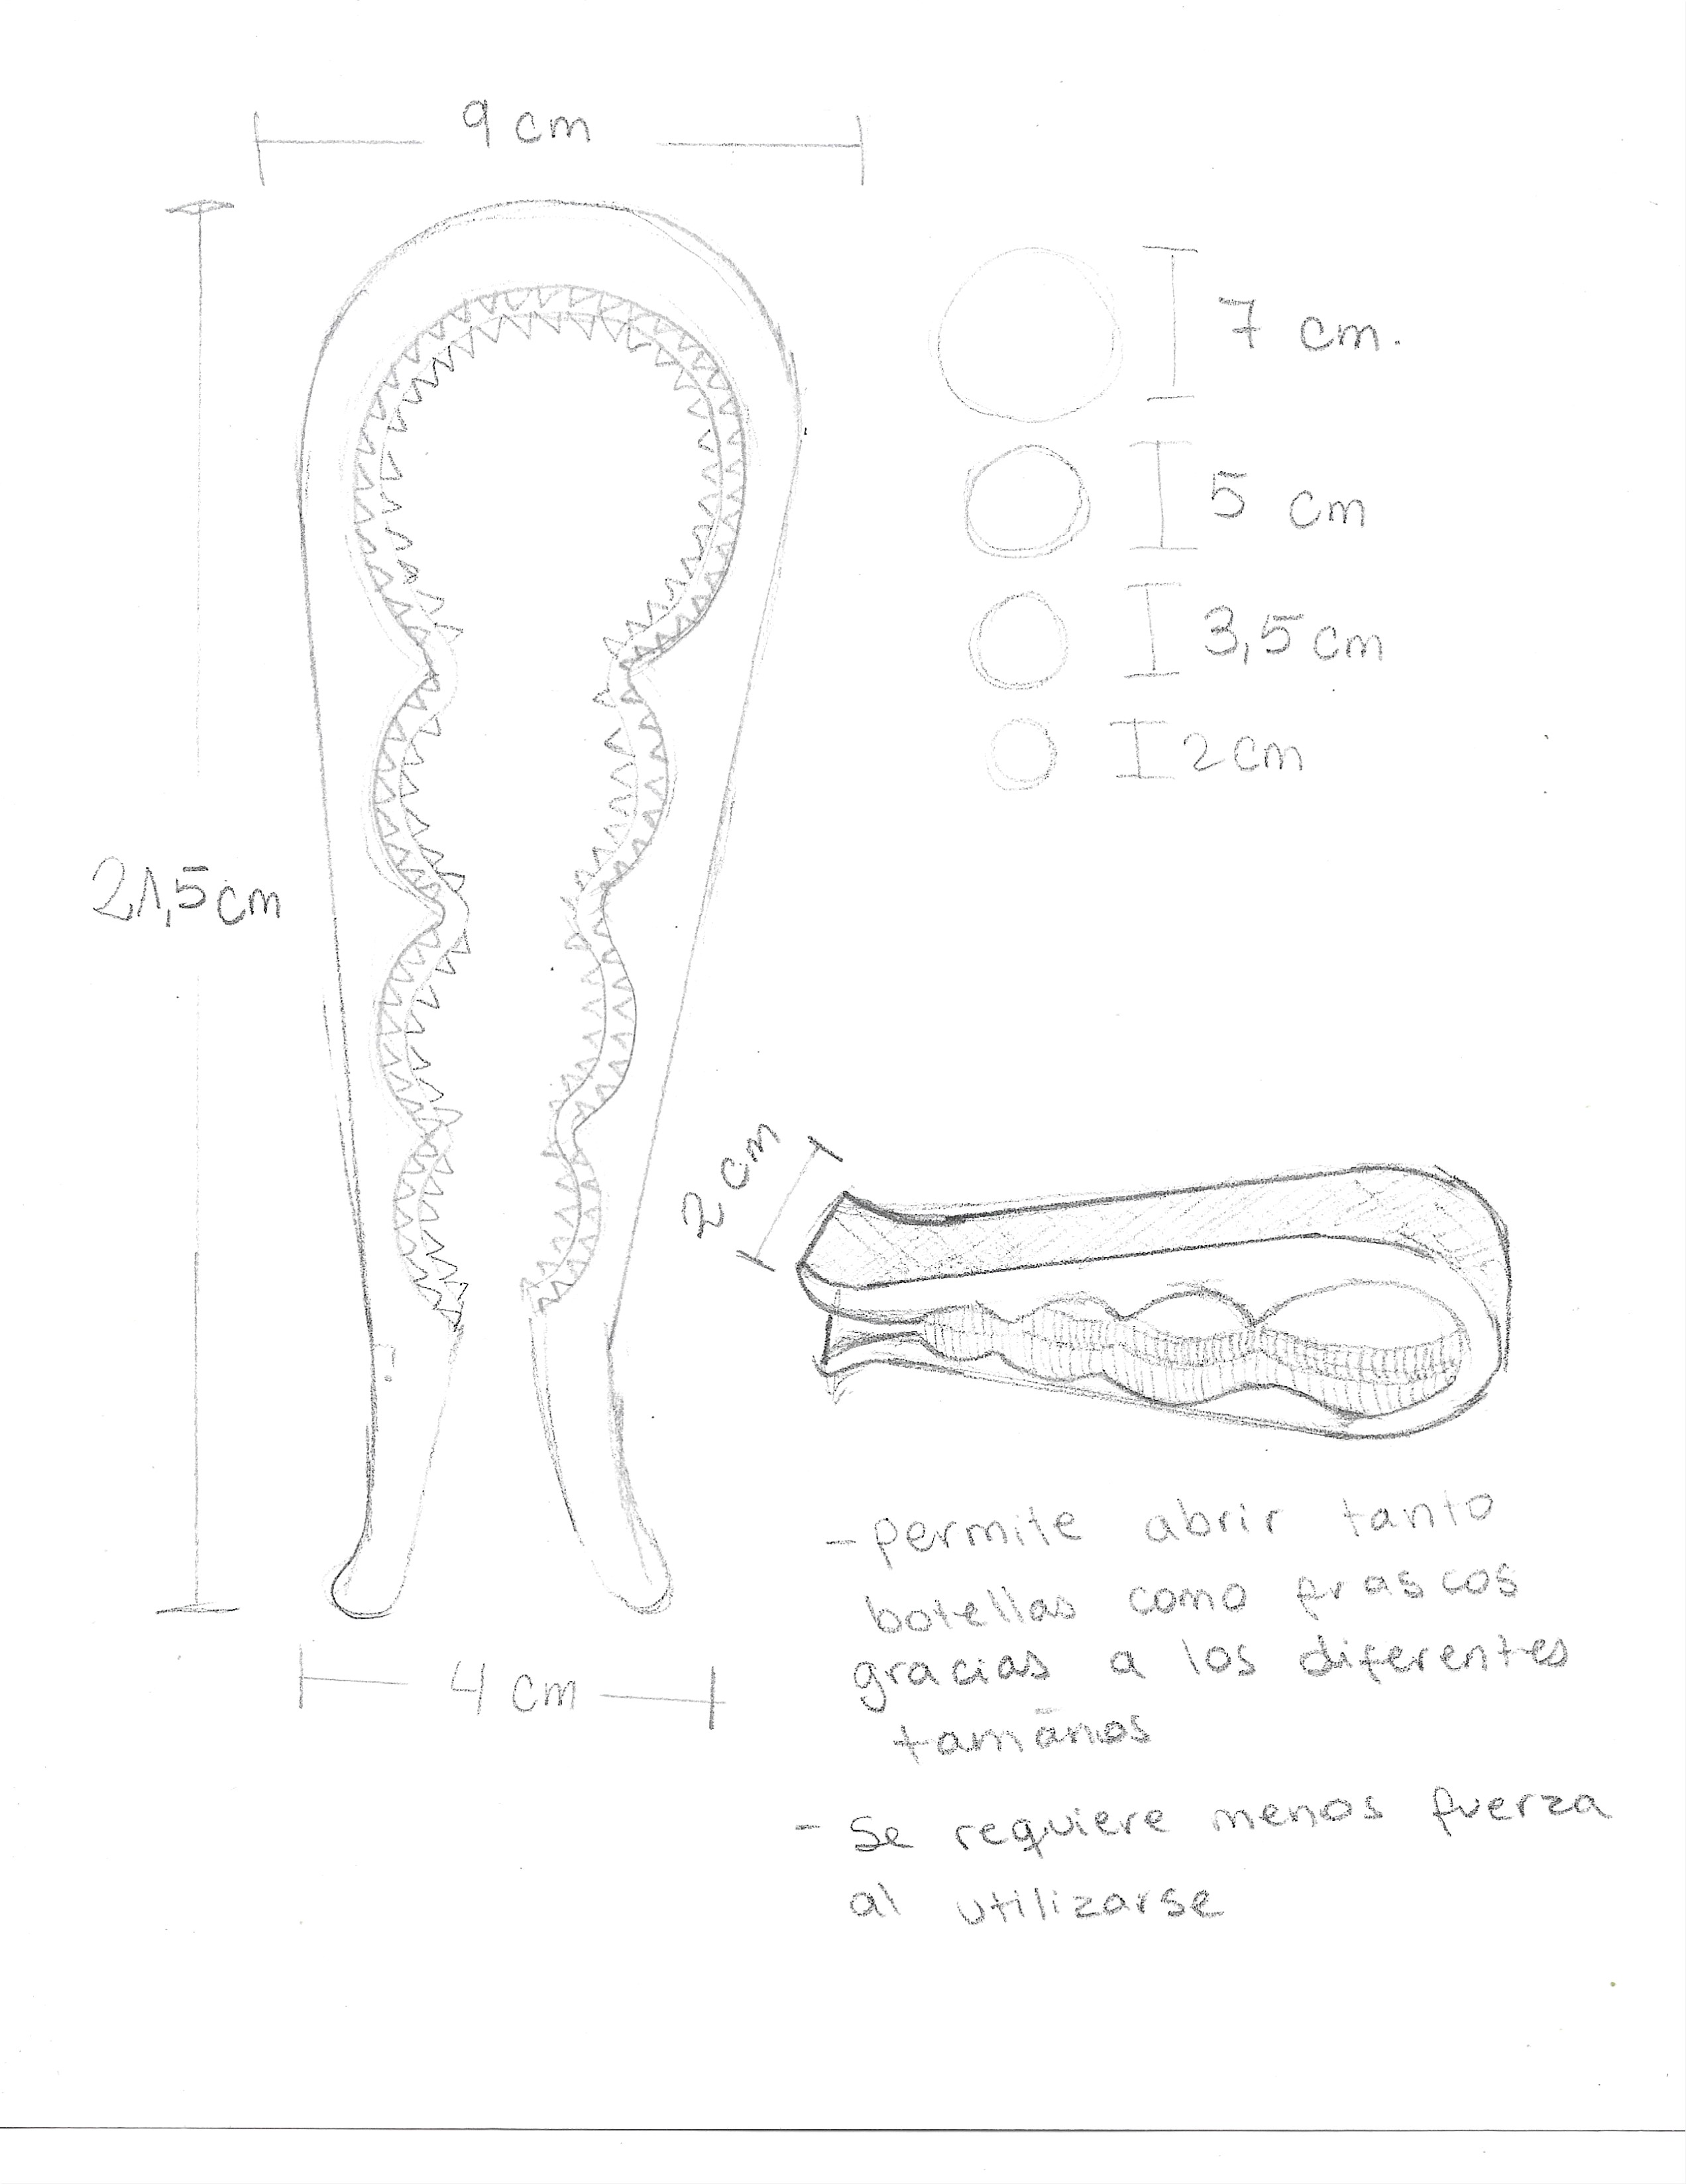 9 cm
7 cm.
5 cm
3,5 cm
2 cm
21,5 cm
2 cm
- permite abrir tanto
botellas como frascos
gracias a los diferentes
tamaños
- Se requiere menos fuerza
al utilizarse
4 cm